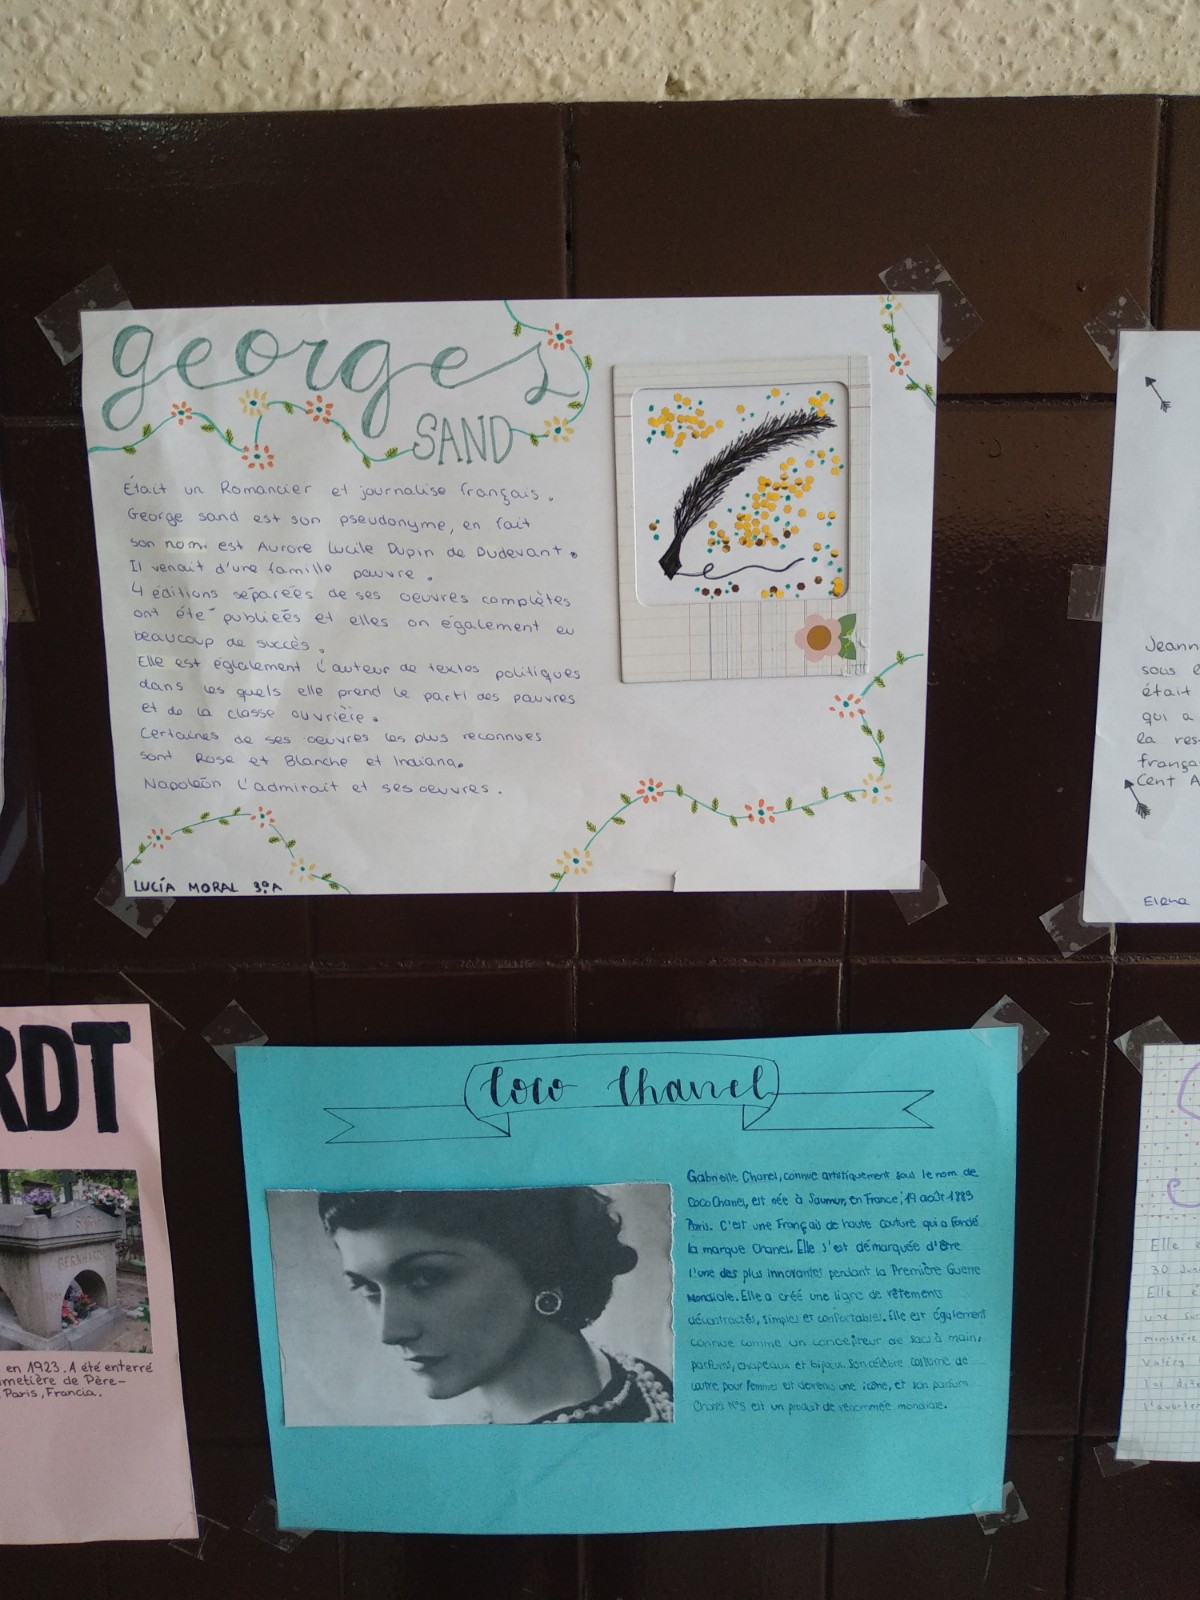 georges
SAND
Était un Romancier et journalise français.
George sand est son pseudonyme, en fait
son nom est Aurore Lucile Dupin de Dudevant.
Il venait d'une famille pauvre.
4 éditions séparées de ses oeuvres complètes
ont été publiées et elles on également eu
beaucoup de succès.
Elle est églalement l'auteur de textes politiques
dans les quels elle prend le parti des pauvres
et de la classe ouvrière.
Certaines de ses oeuvres les plus reconnues
sont Rose et Blanche et Indiana.
Napoleōn l'admirait et ses oeuvres.
LUCÍA MORAL 3ºA
Jeann
sous
était
qui a
la res
frança
Cent A
Elena
RDT
en 1923. A été enterré
metière de Père-
Paris, Francia.
Coco Chanel
Gabrielle Chanel, connue artistiquement sous le nom de
Coco Chanel, est née à Saumur, en France, 19 août 1883
Paris. C'est une Français de haute couture qui a fondé
la marque Chanel. Elle s'est démarquée d'être
l'une des plus innovantes pendant la Première Guerre
Mondiale. Elle a créé une ligne de vêtements
décontractés, simples et confortables. Elle est également
connue comme un concepteur de sacs à main,
parfums, chapeaux et bijoux. Son célèbre costume de
pour femmes est devenu une icône, et son parfum
Chanel Nº5 est un produit de renommée mondiale.
Elle
30
Elle
une
ministère